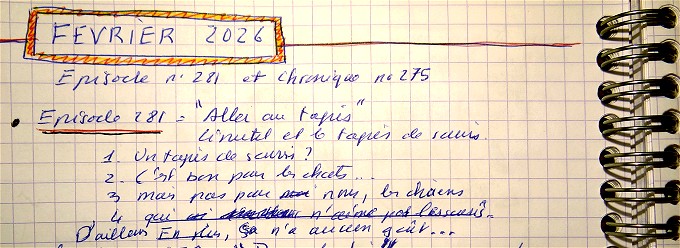 FEVRIER 2026
Episode n° 281 et chronique n° 275
Episode 281 = "Aller au tapis"
et le tapis de souris.
1. Un tapis de souris ?
2. C'est bon pour les chats...
3 mais pas pour nous, les chiens
4 qui
D'ailleurs En plus, ça n'a aucun goût...